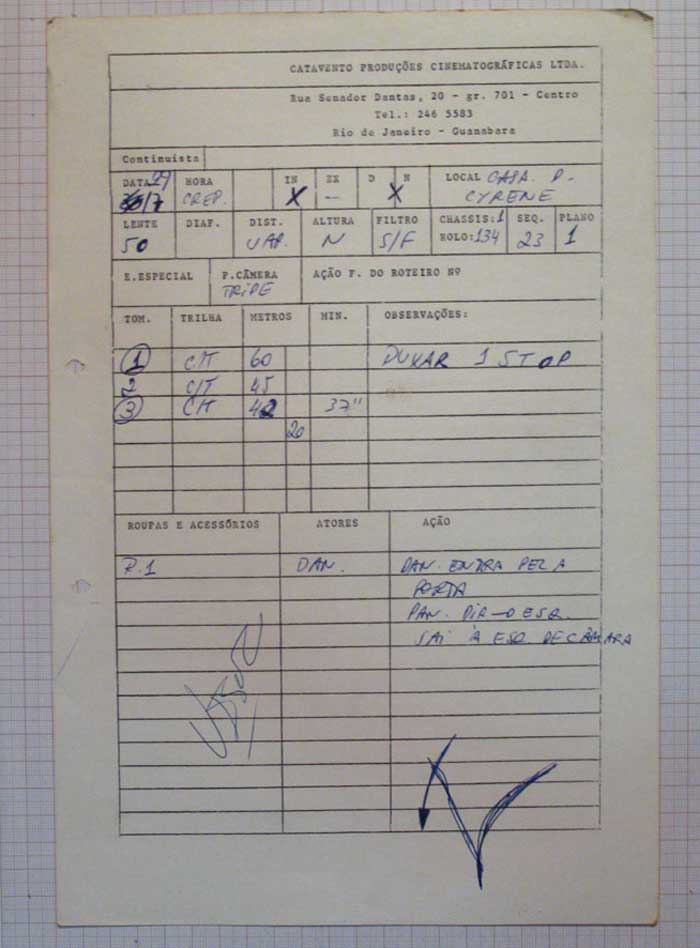 CATAVENTO PRODUÇÕES CINEMATOGRÁFICAS LTDA.
Rua Senador Dantas, 20 - gr. 701 - Centro
Tel.: 246 5583
Rio de Janeiro - Guanabara
Continuista
DATA 29 HORA IN EX D N LOCAL CASA. P.
/7 CREP. X — X CYRENE
LENTE DIAF. DIST. ALTURA FILTRO CHASSIS: 1 SEQ. PLANO
50 VAR. N S/F ROLO: 134 23 1
E.ESPECIAL P.CÂMERA AÇÃO F. DO ROTEIRO Nº
TRIPE
TOM. TRILHA METROS MIN. OBSERVAÇÕES:
1 60 PUXAR 1 STOP
2 45
3 42 37"
20
ROUPAS E ACESSÓRIOS ATORES AÇÃO
R.1 DAN. DAN. ENTRA PELA
PORTA
PAN. DIR→ESQ.
SAI À ESQ. DE CÂMARA